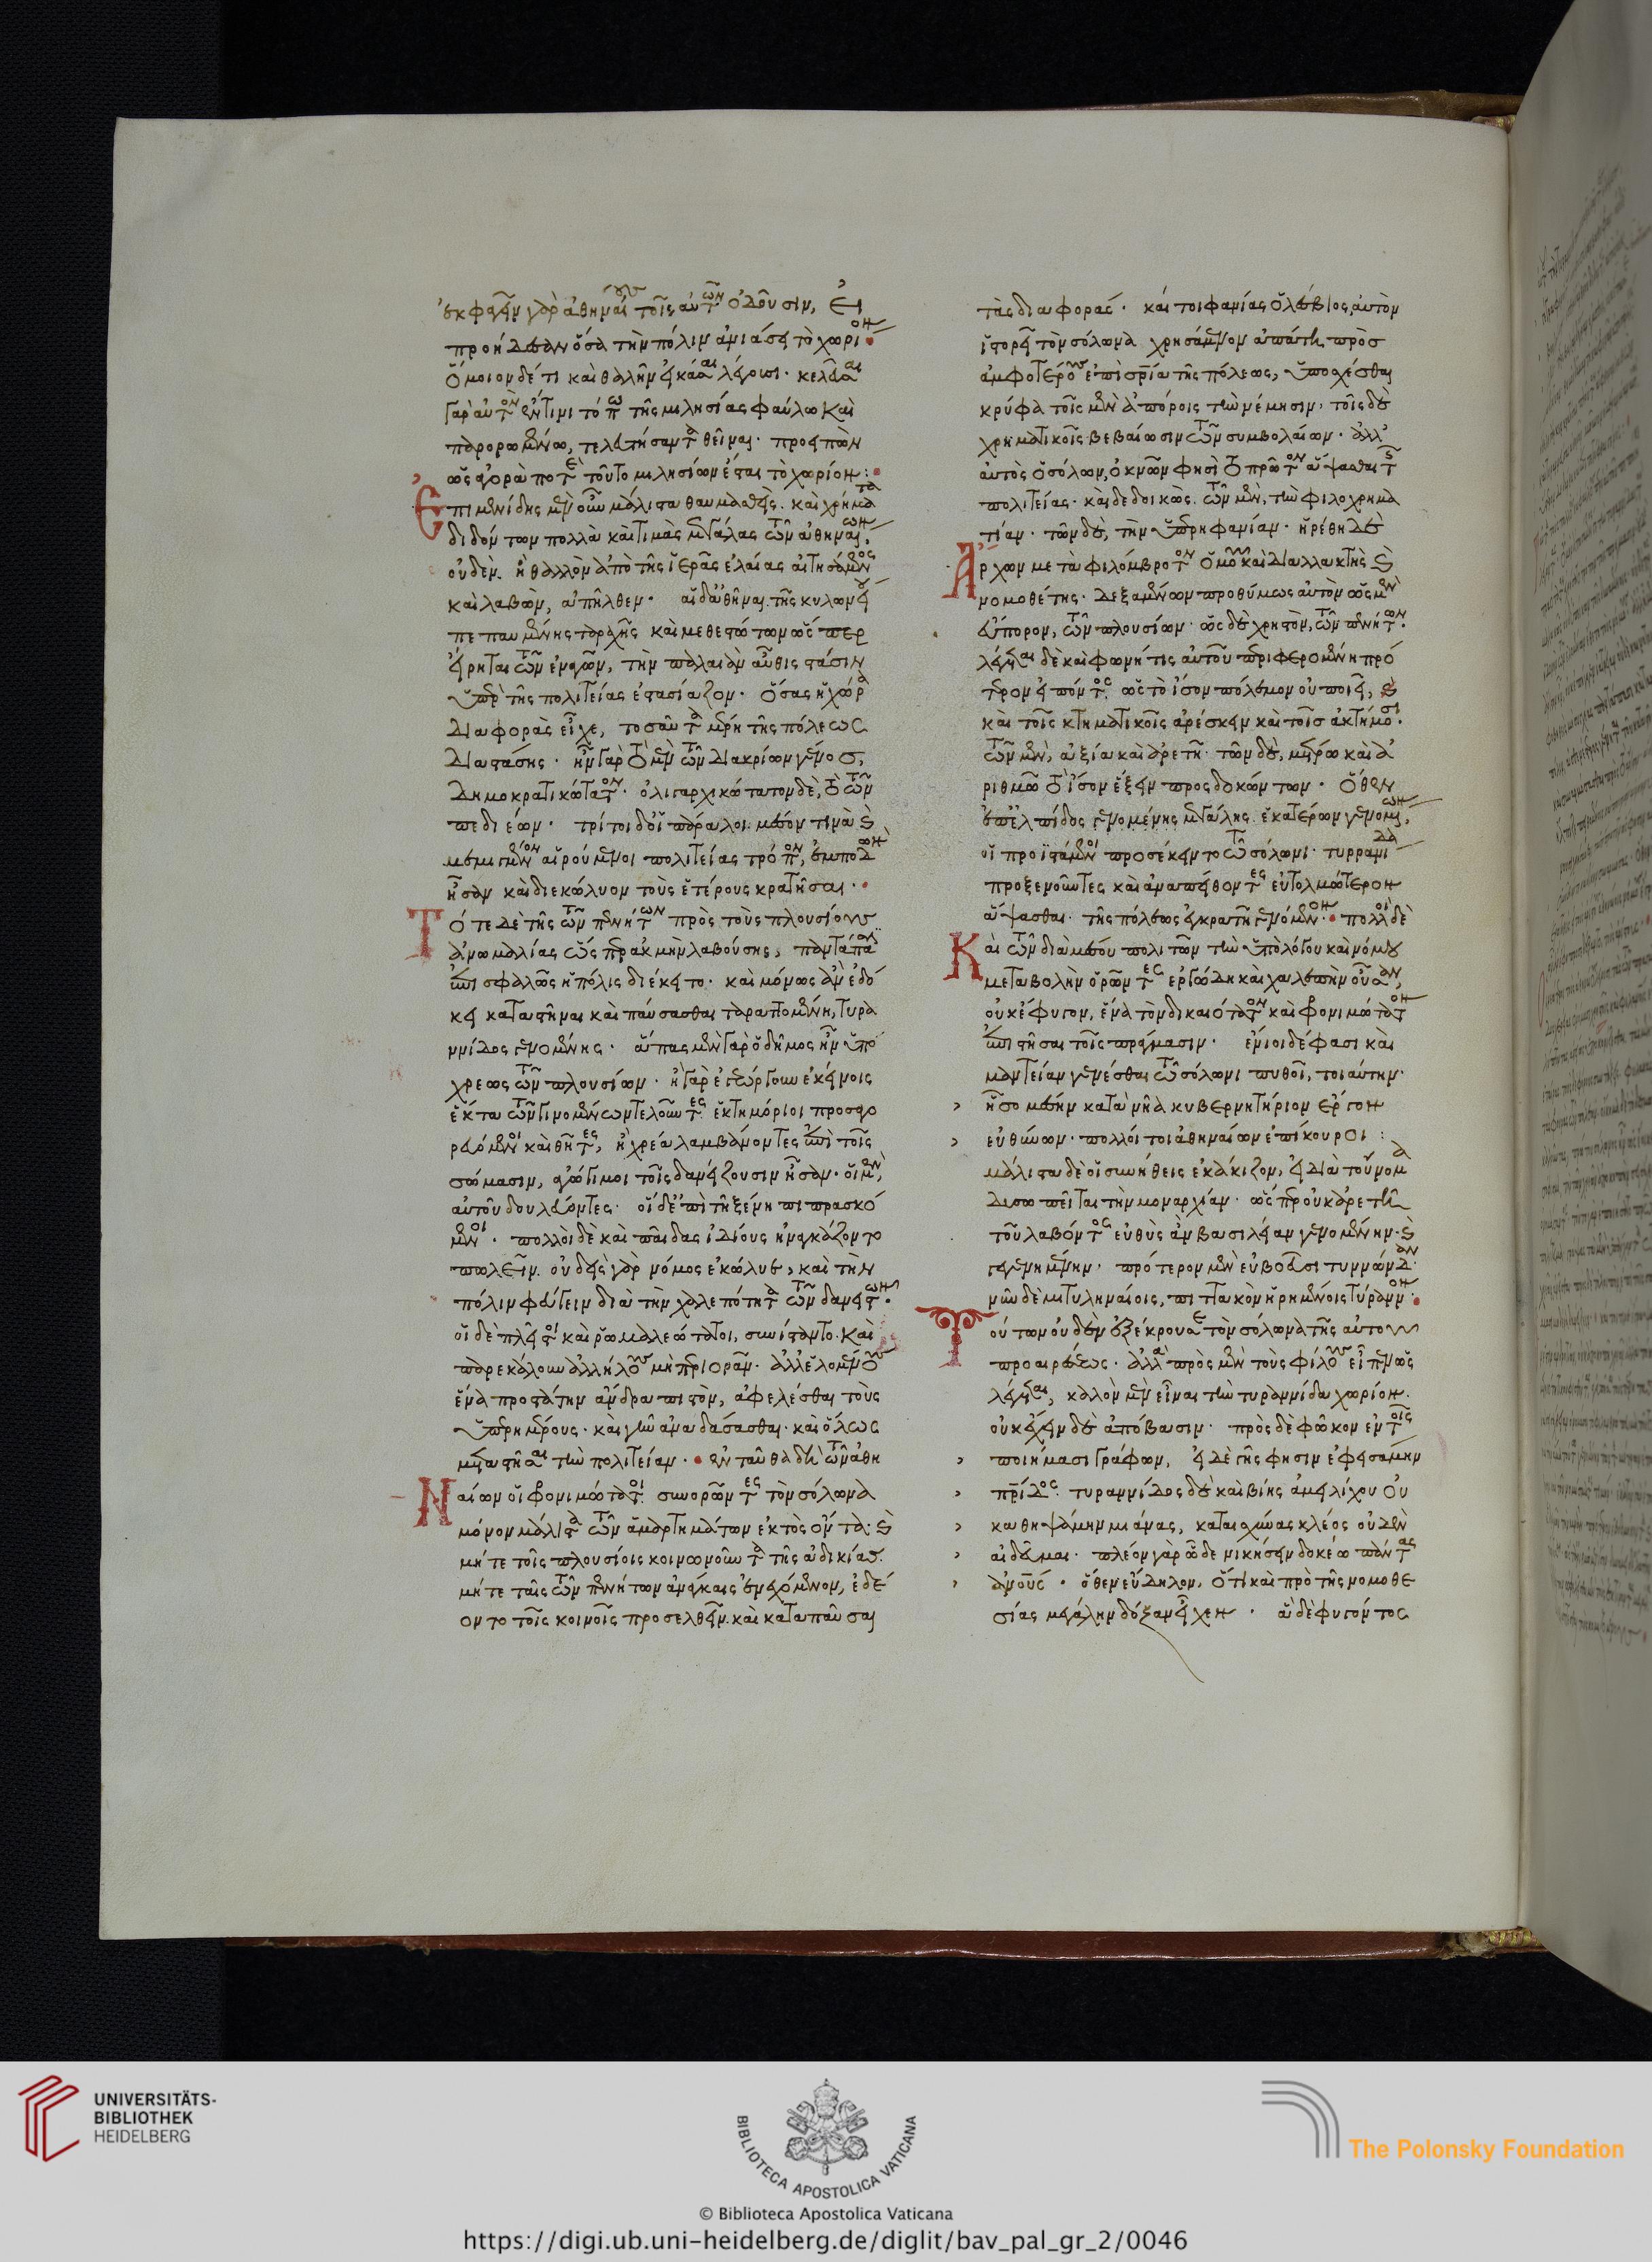 ἐκφαγεῖν γὰρ ἀθηναίους τοῖς αὐτῶν ὀδοῦσιν, εἰ
προήδεσαν ὅσα τὴν πόλιν ἀνιάσει τὸ χωρίον
ὅμοιον δέ τι καὶ θαλῆν εἰκάσαι λέγουσι. κελεῦσαι
γὰρ αὐτὸν ἔν τινι τόπω τῆς μιλησίας φαύλω καὶ
παρορωμένω, τελευτήσαντα θεῖναι. προειπὼν
ὡς ἀγορὰ ποτὲ τοῦτο μιλησίων ἔσται τὸ χωρίον:
Ἐπιμενίδης μὲν οὖν μάλιστα θαυμασθεὶς. καὶ χρήματα
διδόντων πολλὰ καὶ τιμὰς μεγάλας τῶν ἀθηναίων,
οὐδὲν ἢ θαλλὸν ἀπὸ τῆς ἱερᾶς ἐλαίας αἰτησάμενος
καὶ λαβὼν, ἀπῆλθεν. αἱ δ' ἀθῆναι τῆς κυλωνείου
πεπαυμένης ταραχῆς καὶ μεθεστώτων ὥσπερ
εἴρηται τῶν ἐναγῶν, τὴν παλαιὰν αὖθις στάσιν
ὑπὲρ τῆς πολιτείας ἐστασίαζον. ὅσας ἡ χώρα
διαφορὰς εἶχε, τοσαῦτα μέρη τῆς πόλεως
διαστάσης. ἦν γὰρ τὸ μὲν τῶν διακρίων γένος,
δημοκρατικώτατον. ὀλιγαρχικώτατον δὲ, τὸ τῶν
πεδιέων. τρίτοι δ' οἱ πάραλοι μέσον τινὰ καὶ
μεμιγμένον αἱρούμενοι πολιτείας τρόπον, ἐμποδὼν
ἦσαν καὶ διεκώλυον τοὺς ἑτέρους κρατῆσαι.
Τότε δὲ τῆς τῶν πενήτων πρὸς τοὺς πλουσίους
ἀνωμαλίας ὥσπερ ἀκμὴν λαβούσης, παντάπασιν
ἐπισφαλῶς ἡ πόλις διέκειτο. καὶ μόνως ἂν ἐδό
κει καταστῆναι καὶ παύσασθαι ταραττομένη, τυρα
ννίδος γενομένης. ἅπας μὲν γὰρ ὁ δῆμος ἦν ὑπό
χρεως τῶν πλουσίων. ἢ γὰρ ἐγεώργουν ἐκείνοις
ἕκτα τῶν γινομένων τελοῦντες ἑκτημόριοι προσαγο
ρευόμενοι καὶ θῆτες, ἢ χρέα λαμβάνοντες ἐπὶ τοῖς
σώμασιν, ἀγώγιμοι τοῖς δανείζουσιν ἦσαν. οἱ μὲν,
αὐτοῦ δουλεύοντες. οἱ δ' ἐπὶ τῆ ξένη πιπρασκό
μενοι. πολλοὶ δὲ καὶ παῖδας ἰδίους ἠναγκάζοντο
πωλεῖν. οὐδεὶς γὰρ νόμος ἐκώλυε, καὶ τὴν
πόλιν φεύγειν διὰ τὴν χαλεπότητα τῶν δανειστῶν.
οἱ δὲ πλεῖστοι καὶ ῥωμαλεώτατοι, συνίσταντο. καὶ
παρεκάλουν ἀλλήλους μὴ περιορᾶν. ἀλλ' ἑλομένους
ἕνα προστάτην ἄνδρα πιστὸν, ἀφελέσθαι τοὺς
ὑπερημέρους. καὶ γῆν ἀναδάσασθαι. καὶ ὅλως
μεταστῆσαι τὴν πολιτείαν. ἐνταῦθα δὴ τῶν ἀθη
Ναίων οἱ φρονιμώτατοι συνορῶντες τὸν σόλωνα
μόνον μάλιστα τῶν ἁμαρτημάτων ἐκτὸς ὄντα. καὶ
μήτε τοῖς πλουσίοις κοινωνοῦντα τῆς ἀδικίας.
μήτε ταῖς τῶν πενήτων ἀνάγκαις ἐνεχόμενον, ἐδέ
οντο τοῖς κοινοῖς προσελθεῖν. καὶ καταπαῦσαι
τὰς διαφοράς. καίτοι φανίας ὁ λέσβιος, αὐτὸν
ἱστορεῖ τὸν σόλωνα χρησάμενον ἀπάτη πρὸς
ἀμφοτέρους ἐπὶ σωτηρία τῆς πόλεως, ὑποσχέσθαι
κρύφα τοῖς μὲν ἀπόροις τὴν νέμησιν. τοῖς δὲ
χρηματικοῖς βεβαίωσιν τῶν συμβολαίων. ἀλλ'
αὐτὸς ὁ σόλων, ὀκνῶν φησὶ τὸ πρῶτον ἅψασθαι τῆς
πολιτείας. καὶ δεδοικὼς. τῶν μὲν, τὴν φιλοχρημα
τίαν. τῶν δὲ, τὴν ὑπερηφανίαν. ἡρέθη δὲ
Ἄρχων μετὰ φιλόμβροτον ὁμοῦ καὶ διαλλακτὴς καὶ
νομοθέτης. δεξαμένων προθύμως αὐτὸν ὡς μὲν
εὔπορον, τῶν πλουσίων. ὡς δὲ χρηστὸν, τῶν πενήτων.
λέγεται δὲ καὶ φωνή τις αὐτοῦ περιφερομένη πρό
τερον εἰπόντος ὡς τὸ ἴσον πόλεμον οὐ ποιεῖ, καὶ
καὶ τοῖς κτηματικοῖς ἀρέσκειν καὶ τοῖς ἀκτήμοσι.
τῶν μὲν, ἀξία καὶ ἀρετῆ. τῶν δὲ, μέτρω καὶ ἀ
ριθμῶ τὸ ἴσον ἕξειν προσδοκώντων. ὅθεν
ἐπ' ἐλπίδος γενομένης μεγάλης ἑκατέρων γενομένων,
οἱ προϊστάμενοι προσέκειντο τῶ σόλωνι. τυραννίδα
προξενοῦντες καὶ ἀναπείθοντες εὐτολμότερον
ἅψασθαι. τῆς πόλεως ἐγκρατῆ γενόμενον. πολλοὶ δὲ
Καὶ τῶν διὰ μέσου πολιτῶν τὴν ὑπὸ λόγου καὶ νόμου
μεταβολὴν ὁρῶντες ἐργώδη καὶ χαλεπὴν οὖσαν,
οὐκ ἔφυγον, ἕνα τὸν δικαιότατον καὶ φρονιμώτατον
ἐπιστῆσαι τοῖς πράγμασιν. ἔνιοι δέ φασι καὶ
μαντείαν γενέσθαι τῶ σόλωνι πυθοῖ, τοιαύτην.
ἧσο μέσην κατὰ νῆα κυβερνητήριον ἔργον
εὐθύνων. πολλοί τοι ἀθηναίων ἐπίκουροι:
μάλιστα δὲ οἱ συνήθεις ἐκάκιζον, εἰ διὰ τοὔνομα
δυσωπεῖται τὴν μοναρχίαν. ὥσπερ οὐκ ἀρετῆ
τοῦ λαβόντος εὐθὺς ἂν βασιλείαν γενομένην. καὶ
γεγενημένην. πρότερον μὲν εὐβοεῦσι τυννώνδαν.
νῦν δὲ μιτυληναίοις, πιττακὸν ἡρημένοις τύραννον.
Τούτων οὐδὲν ἐξέκρουσε τὸν σόλωνα τῆς αὐτοῦ
προαιρέσεως. ἀλλὰ πρὸς μὲν τοὺς φίλους εἶπεν ὡς
λέγεται, καλὸν μὲν εἶναι τὴν τυραννίδα χωρίον.
οὐκ ἔχειν δὲ ἀπόβασιν. πρὸς δὲ φῶκον ἐν τοῖς
ποιήμασι γράφων, εἰ δὲ γῆς φησιν ἐφεισάμην
πατρίδος. τυραννίδος δὲ καὶ βίης ἀμειλίχου οὐ
καθηψάμην μιάνας, καταισχύνας κλέος οὐδὲν
αἰδεῦμαι. πλέον γὰρ ὧδε νικήσειν δοκέω πάντας
ἀν̅ους. ὅθεν εὔδηλον, ὅτι καὶ πρὸ τῆς νομοθε
σίας μεγάλην δόξαν εἶχεν. ἃ δὲ φυγόντος
UNIVERSITÄTS-
BIBLIOTHEK
HEIDELBERG
BIBLIOTECA APOSTOLICA VATICANA
The Polonsky Foundation
© Biblioteca Apostolica Vaticana
https://digi.ub.uni-heidelberg.de/diglit/bav_pal_gr_2/0046